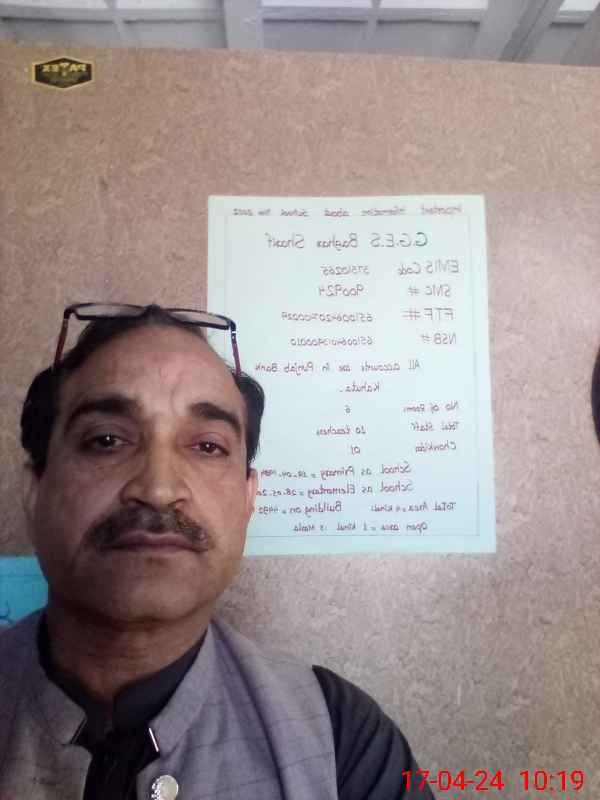 PA EX
Important information about School Nov 2022
G.G.E.S Baghar Sharif
EMIS Code 37510265
SMC # 900924
FTF # 6510064207700029
NSB # 6510064013400010
All accounts are in Punjab Bank
Kahuta.
No of Rooms 6
Total Staff 10 teachers
Chowkidar 01
School as Primary = 19-04-1989
School as Elementary = 28.05.20
Total Area = 4 kinal Building on = 9492
Open area = 2 kinal 15 Marla
17-04-24 10:19